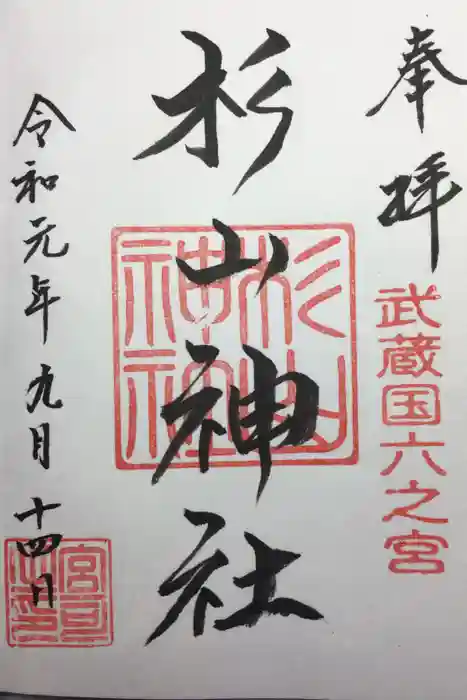 奉拝
武蔵国六之宮
杉山神社
杉山神社
令和元年九月十四日
宮司之印